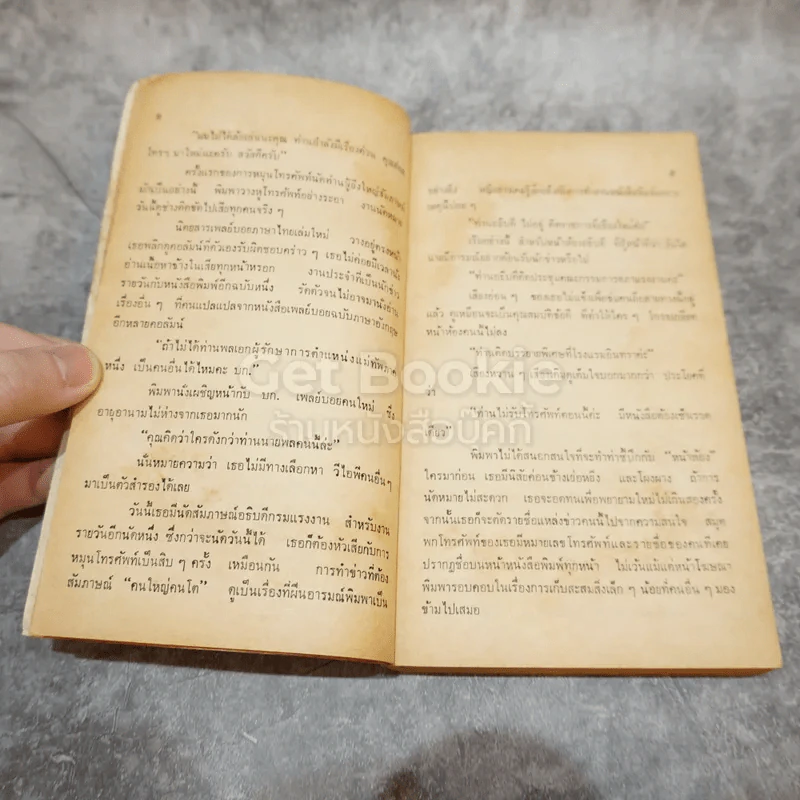 8
ใครๆ มาใหม่นะครับ สวัสดีครับ"
ครั้งแรกของการหมุนโทรศัพท์นัดท่านผู้ยิ่งใหญ่
มันเป็นอย่างนี้ พิมพาวางหูโทรศัพท์อย่างระอา งานนัดหมาย
วันนี้ดูช่างติดขัดไปเสียทุกคนจริง ๆ
นิตยสารเพลย์บอยภาษาไทยเล่มใหม่ วางอยู่ตรงหน้า
เธอพลิกดูคอลัมน์ที่ตัวเองรับผิดชอบคร่าว ๆ เธอไม่ค่อยมีเวลานั่ง
อ่านเนื้อหาข้างในเสียทุกหน้าหรอก งานประจำที่เป็นนักข่าว
รายวันกับหนังสือพิมพ์อีกฉบับหนึ่ง รัดตัวจนไม่อาจมานั่งอ่าน
เรื่องอื่น ๆ ที่คนแปลแปลจากหนังสือเพลย์บอยฉบับภาษาอังกฤษ
อีกหลายคอลัมน์
"ถ้าไม่ได้ท่านพลเอกผู้รักษาการตำแหน่งแม่ทัพภาค
หนึ่ง เป็นคนอื่นได้ไหมคะ บก."
พิมพานั่งเผชิญหน้ากับ บก. เพลย์บอยคนใหม่ ซึ่ง
อายุอานามไม่ห่างจากเธอมากนัก
"คุณคิดว่าใครดังกว่าท่านนายพลคนนี้ล่ะ"
นั่นหมายความว่า เธอไม่มีทางเลือกหา วีไอพีคนอื่นๆ
มาเป็นตัวสำรองได้เลย
วันนี้เธอมีนัดสัมภาษณ์อธิบดีกรมแรงงาน สำหรับงาน
รายวันอีกนัดหนึ่ง ซึ่งกว่าจะนัดวันนี้ได้ เธอก็ต้องหัวเสียกับการ
หมุนโทรศัพท์เป็นสิบ ๆ ครั้ง เหมือนกัน การทำข่าวที่ต้อง
สัมภาษณ์ "คนใหญ่คนโต" ดูเป็นเรื่องที่ฝืนอารมณ์พิมพาเป็น
9
"ท่านอธิบดีติดประชุมคณะกรรมการ
เสียงอ่อน ๆ ของเธอไม่แข็งเพื่อ
แล้ว ดูเหมือนจะเป็นคุณสมบัติข้อดี ที่ทำให้ใคร ๆ โกรธเกลียด
หน้าห้องคนนี้ไม่ลง
"ท่านติดบรรยายพิเศษที่โรงแรมอินทราค่ะ"
เสียงหวาน ๆ เรียก
ว่า
"ท่านไม่รับโทรศัพท์ตอนนี้ค่ะ มีหนังสือต้องเซ็นรวด
เดียว"
พิมพาไม่ได้สนอกสนใจที่จะทำท่าซี้ปึ้กกับ "หน้าห้อง"
ใครมาก่อน เธอมีนิสัยค่อนข้างเย่อหยิ่ง และโผงผาง ถ้าการ
นัดหมายไม่สะดวก เธอจะอดทนเพื่อพยายามใหม่ไม่เกินสองครั้ง
จากนั้นเธอก็จะคัดรายชื่อแหล่งข่าวคนนี้ไปจากความสนใจ สมุด
พกโทรศัพท์ของเธอมีหมายเลขโทรศัพท์และรายชื่อของคนที่เคย
ปรากฏชื่อบนหน้าหนังสือพิมพ์ทุกหน้า ไม่เว้นแม้แต่หน้าโฆษณา
พิมพารอบคอบในเรื่องการเก็บสะสมสิ่งเล็ก ๆ น้อยที่คนอื่น ๆ มอง
ข้ามไปเสมอ
Get Bookie
ร้านหนังสือบุ๊คกี้